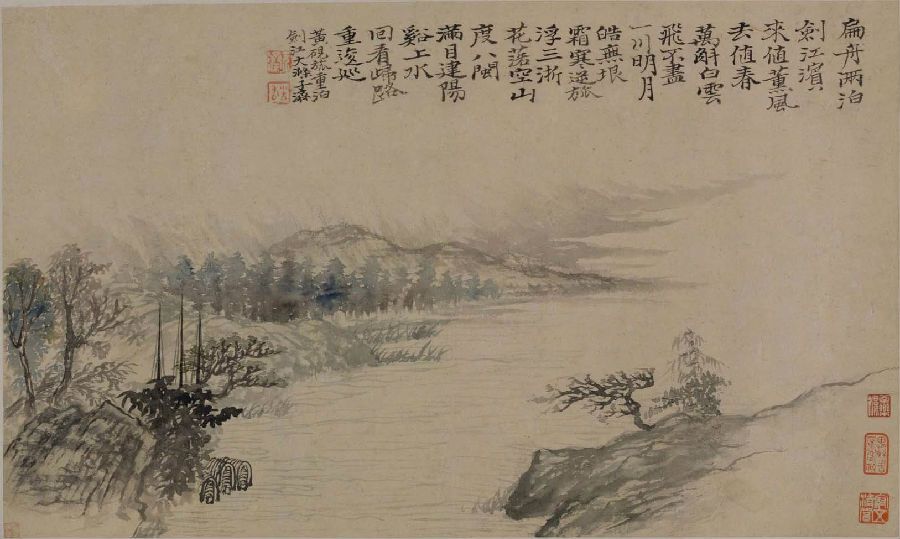 扁舟兩泊
劍江濱
來值薰風
去值春
萬斛白雲
飛不盡
一川明月
皓無垠
霜寒逆旅
浮三浙
花落空山
度八閩
滿目建陽
谿上水
回看歸路
重逡巡
黃硯旅重泊
劍江大滌子濟